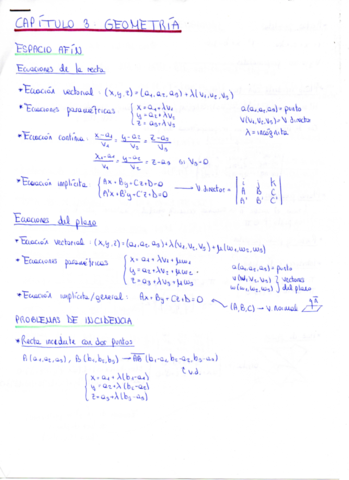 CAPÍTULO 3: GEOMETRÍA
ESPACIO AFÍN
Ecuaciones de la recta
• Ecuación vectorial: (x,y,z) = (a₁,a₂,a₃) + λ(v₁,v₂,v₃)
• Ecuaciones paramétricas { x = a₁ + λv₁
y = a₂ + λv₂
z = a₃ + λv₃
a(a₁,a₂,a₃) = punto
v(v₁,v₂,v₃) = v director
λ = incógnita
• Ecuación continua: x-a₁/v₁ = y-a₂/v₂ = z-a₃/v₃
x-a₁/v₁ = y-a₂/v₂ z-a₃ si v₃=0
• Ecuación implícita { Ax+By+Cz+D=0
A'x+B'y+C'z+D=0
→ v director = | i j k |
A B C
A' B' C'
Ecuaciones del plano
• Ecuación vectorial: (x,y,z) = (a₁,a₂,a₃) + λ(v₁,v₂,v₃) + μ(w₁,w₂,w₃)
• Ecuaciones paramétricas { x = a₁ + λv₁ + μw₁
y = a₂ + λv₂ + μw₂
z = a₃ + λv₃ + μw₃
a(a₁,a₂,a₃) = punto
v(v₁,v₂,v₃) } vectores
w(w₁,w₂,w₃) del plano
• Ecuación implícita/general: Ax+By+Cz+D=0
(A,B,C) → v normal
PROBLEMAS DE INCIDENCIA
• Recta incidente con dos puntos
A(a₁,a₂,a₃), B(b₁,b₂,b₃) → (b₁-a₁, b₂-a₂, b₃-a₃)
v.d.
{ x = a₁ + λ(b₁-a₁)
y = a₂ + λ(b₂-a₂)
z = a₃ + λ(b₃-a₃)